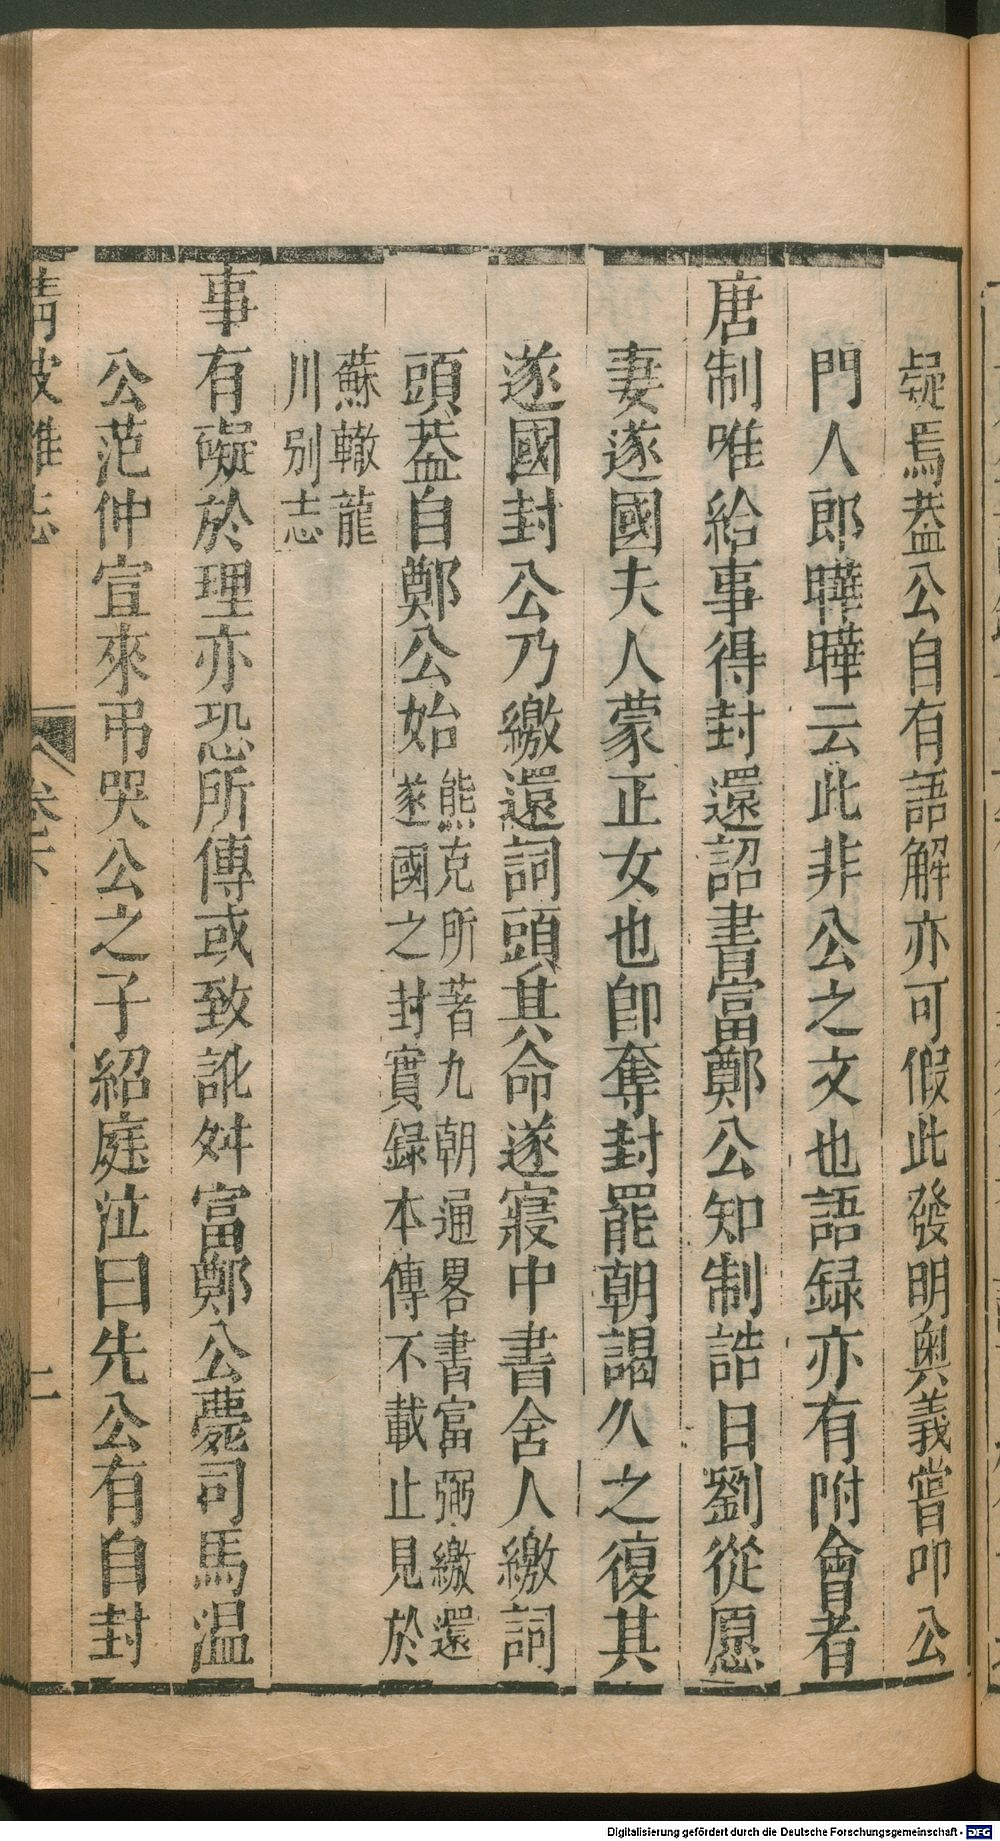 疑焉葢公自有語解亦可假此發明奥義嘗叩公
門人郎曄曄云此非公之文也語録亦有附會者
唐制唯給事得封還詔書富鄭公知制誥日劉從愿
妻遂國夫人蒙正女也卽奪封罷朝謁久之復其
遂國封公乃繳還詞頭其命遂寢中書舍人繳詞
頭葢自鄭公始熊克所著九朝通畧書富弼繳還
遂國之封實録本傳不載止見於
蘇轍龍
川别志
事有礙於理亦恐所傳或致訛舛富鄭公薨司馬温
公范仲宣來弔哭公之子紹庭泣曰先公有自封
清波雜志 卷六 二
Digitalisierung gefördert durch die Deutsche Forschungsgemeinschaft - DFG